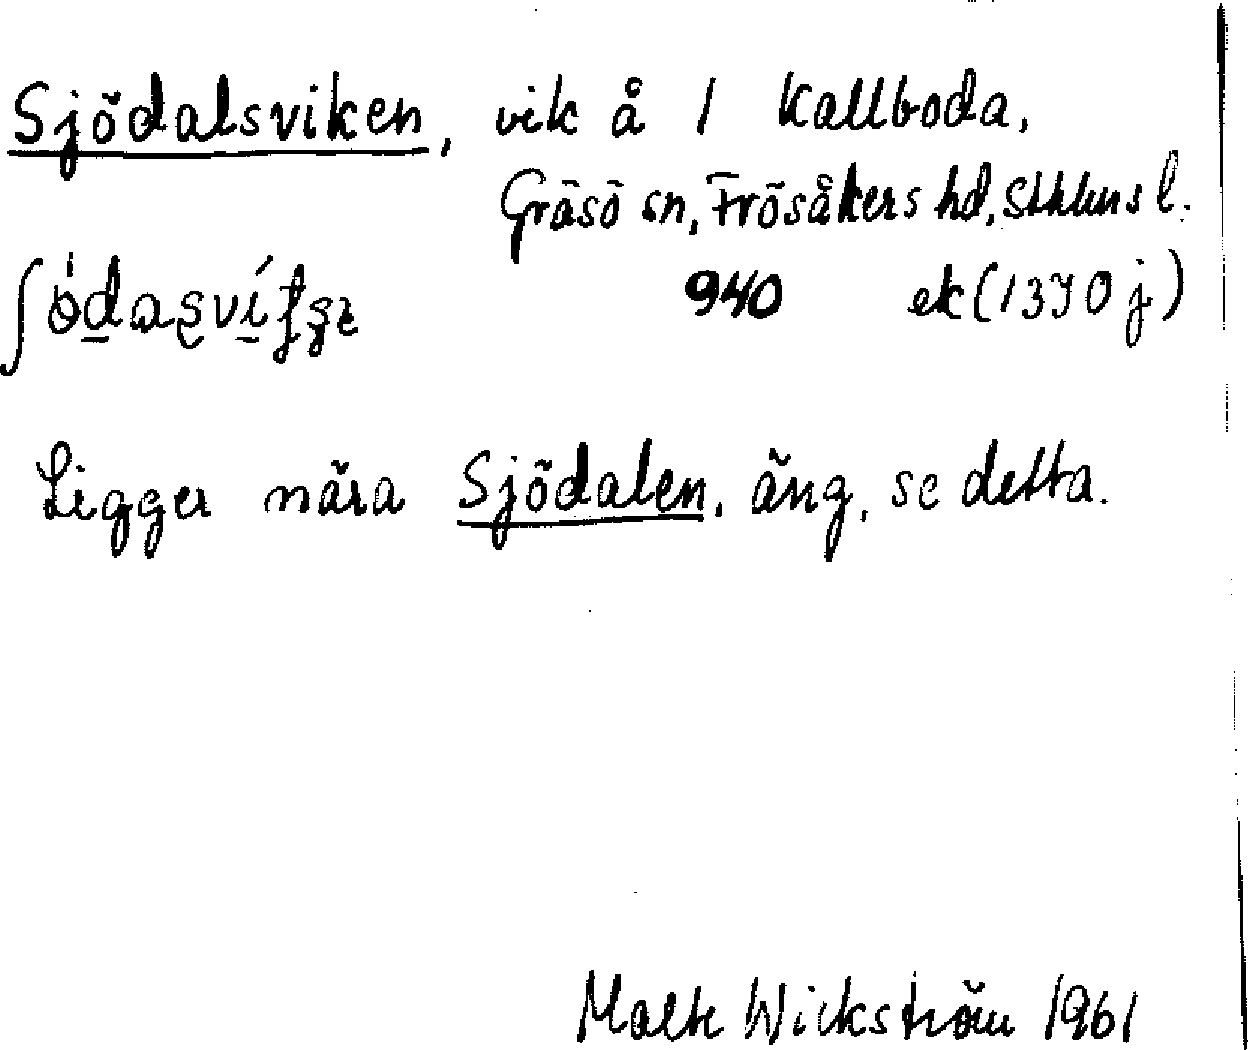 Sjödalsviken, vik å 1 Kallboda,
Gräsö sn, Frösåkers hd, Sthlms l.
940 ek (1370 j)
Ligger nära Sjödalen, äng, se detta.
Malte Wickström 1961